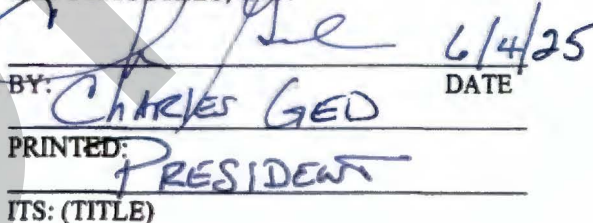 6/4/25
BY: DATE
CHARLES GED
PRINTED:
PRESIDENT
ITS: (TITLE)